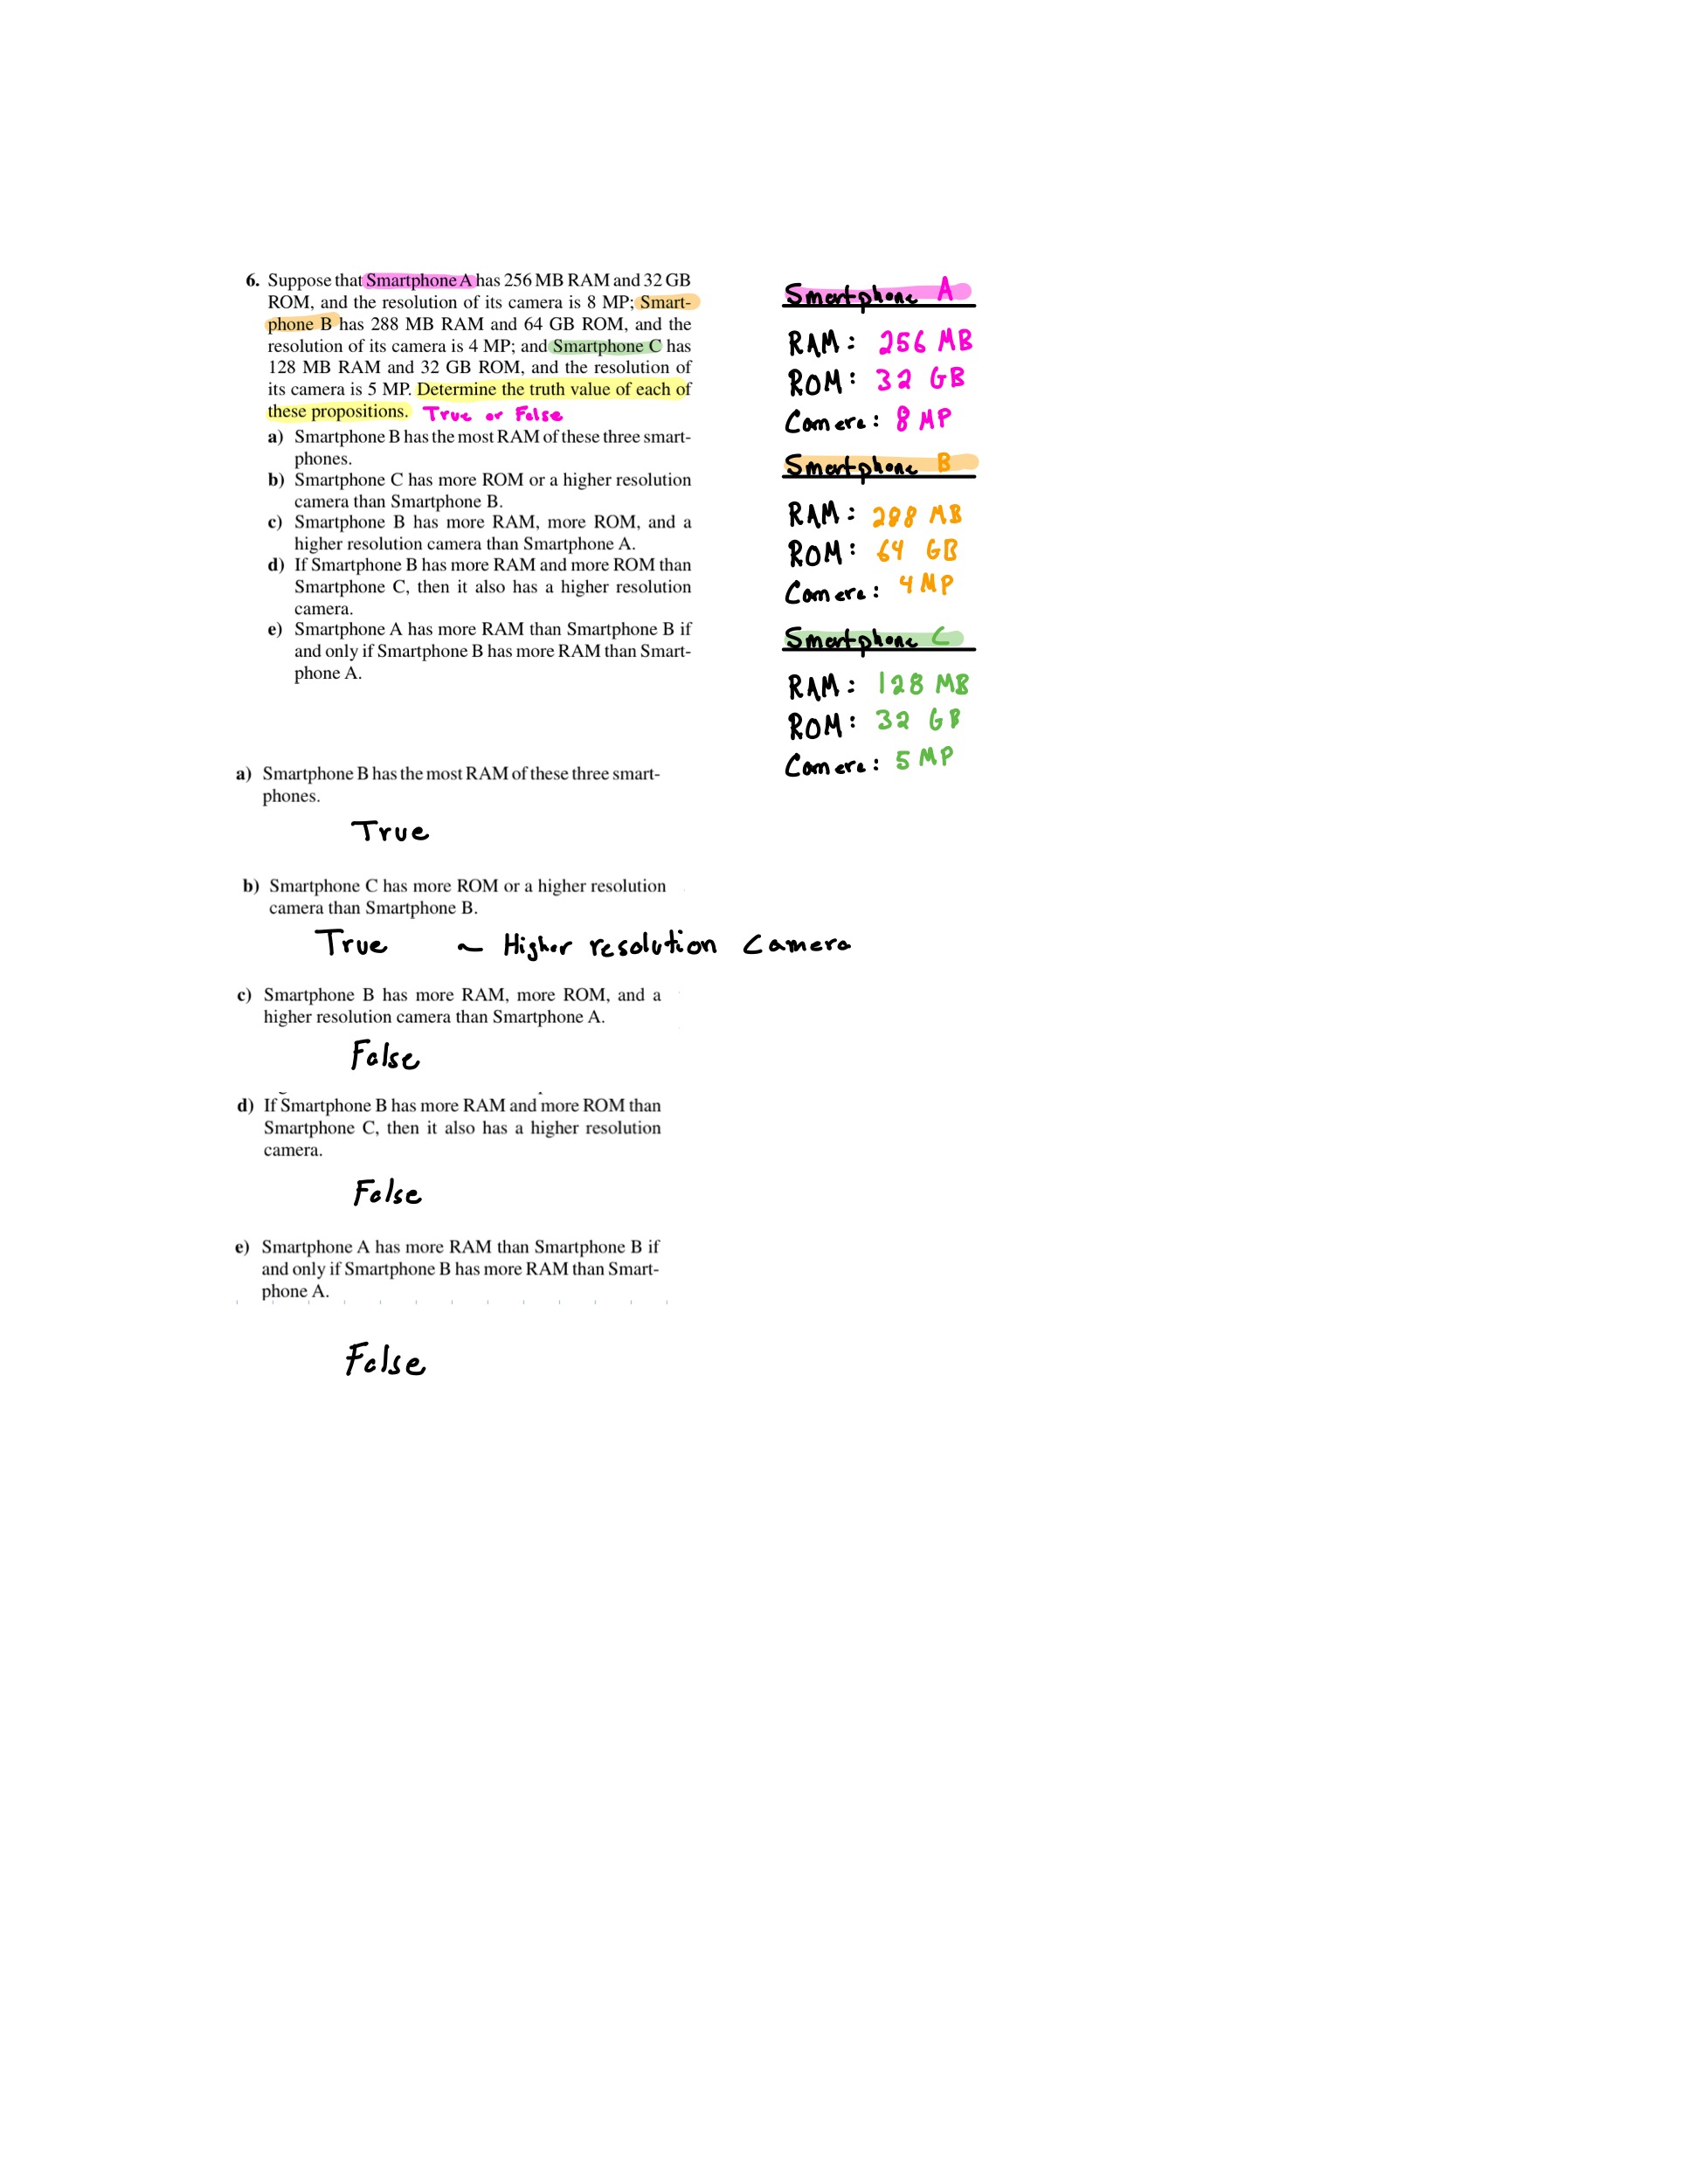 6. Suppose that Smartphone A has 256 MB RAM and 32 GB
ROM, and the resolution of its camera is 8 MP; Smart-
phone B has 288 MB RAM and 64 GB ROM, and the
resolution of its camera is 4 MP; and Smartphone C has
128 MB RAM and 32 GB ROM, and the resolution of
its camera is 5 MP. Determine the truth value of each of
these propositions. True or False
a) Smartphone B has the most RAM of these three smart-
phones.
b) Smartphone C has more ROM or a higher resolution
camera than Smartphone B.
c) Smartphone B has more RAM, more ROM, and a
higher resolution camera than Smartphone A.
d) If Smartphone B has more RAM and more ROM than
Smartphone C, then it also has a higher resolution
camera.
e) Smartphone A has more RAM than Smartphone B if
and only if Smartphone B has more RAM than Smart-
phone A.
Smartphone A
RAM: 256 MB
ROM: 32 GB
Camera: 8 MP
Smartphone B
RAM: 288 MB
ROM: 64 GB
Camera: 4 MP
Smartphone C
RAM: 128 MB
ROM: 32 GB
Camera: 5 MP
a) Smartphone B has the most RAM of these three smart-
phones.
True
b) Smartphone C has more ROM or a higher resolution
camera than Smartphone B.
True ~ Higher resolution Camera
c) Smartphone B has more RAM, more ROM, and a
higher resolution camera than Smartphone A.
False
d) If Smartphone B has more RAM and more ROM than
Smartphone C, then it also has a higher resolution
camera.
False
e) Smartphone A has more RAM than Smartphone B if
and only if Smartphone B has more RAM than Smart-
phone A.
False